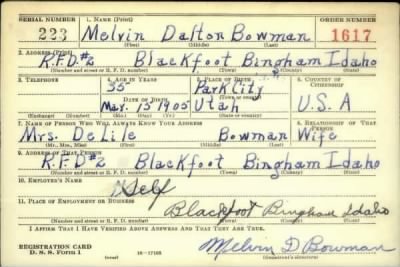 SERIAL NUMBER 1. NAME (Print) ORDER NUMBER
223 Melvin Dalton Bowman 1617
(First) (Middle) (Last)
2. ADDRESS (Print)
R.F.D #2 Blackfoot Bingham Idaho
(Number and street or R. F. D. number) (Town) (County) (State)
3. TELEPHONE 4. AGE IN YEARS 5. PLACE OF BIRTH 6. COUNTRY OF CITIZENSHIP
35 Park City
DATE OF BIRTH (Town or county)
Mar. 15 1905 Utah U.S.A
(Exchange) (Number) (Mo.) (Day) (Yr.) (State or country)
7. NAME OF PERSON WHO WILL ALWAYS KNOW YOUR ADDRESS 8. RELATIONSHIP OF THAT PERSON
Mrs. DeLile Bowman Wife
(Mr., Mrs., Miss) (First) (Middle) (Last)
9. ADDRESS OF THAT PERSON
R.F.D #2 Blackfoot Bingham Idaho
(Number and street or R. F. D. number) (Town) (County) (State)
10. EMPLOYER'S NAME
Self
11. PLACE OF EMPLOYMENT OR BUSINESS
Blackfoot Bingham Idaho
(Number and street or R. F. D. number) (Town) (County) (State)
I AFFIRM THAT I HAVE VERIFIED ABOVE ANSWERS AND THAT THEY ARE TRUE.
REGISTRATION CARD
D. S. S. Form 1 16-17105 Melvin D Bowman